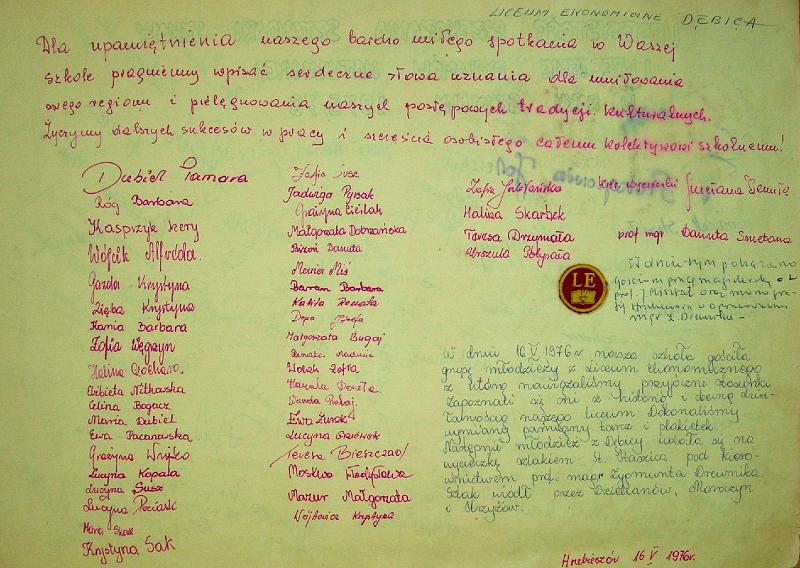 LICEUM EKONOMICZNE DĘBICA
Dla upamiętnienia naszego bardzo miłego spotkania w Waszej
szkole pragniemy wpisać serdeczne słowa uznania dla umiłowania
swego regionu i pielęgnowania naszych postępowych tradycji kulturalnych.
Życzymy dalszych sukcesów w pracy i szczęścia osobistego całemu kolektywowi szkolnemu!
Dubiel Tamara
Róg Barbara
Kasprzyk
Wójcik Alfreda.
Garda Krystyna
Zięba Krystyna
Kania Barbara
Zofia Węgrzyn
Halina
Elżbieta Nitkowska
Celina Bogacz
Maria Dubiel
Ewa Pacanowska
Grażyna
Lucyna Kopala
Lucyna Susz
Lucyna
Maria
Krystyna Sak
Zofia
Jadwiga Pysak
Grażyna Cieślak
Małgorzata Dobrzańska
Bizoń Danuta
Maria Miś
Barram Barbara
Renata
Depa Józefa
Małgorzata Bugaj
Renata
Wołek Zofia
Dorota
Wanda
Ewa Żurek
Lucyna
Teresa Bieszczad
Moskwa Władysława
Mazur Małgorzata
Wojtowicz Krystyna
Zofia
Halina Skarbek
Teresa Drzymała
Urszula
LE
kier. wycieczki Lucjana
prof mgr Danuta Smetana
W dniu tym pokazano
gościom pracę magisterską o
prof. J. oraz
w opracowaniu
mgr Z. Drewnika –
W dniu 16 V 1976 r nasza szkoła gościła
grupę młodzieży z Liceum Ekonomicznego
z którą nawiązaliśmy przyjazne stosunki.
Zapoznali się oni z historią i
naszego liceum. Dokonaliśmy
wymiany pamiątkowych tarcz i plakietek.
Następnie młodzież z Dębicy udała się na
wycieczkę szlakiem St. Staszica pod kierow-
nictwem prof. magr Zygmunta Drewnika.
Szlak wiódł przez Dziekanów, Moroczyn
i Strzyżów.
Hrubieszów 16 V 1976r.